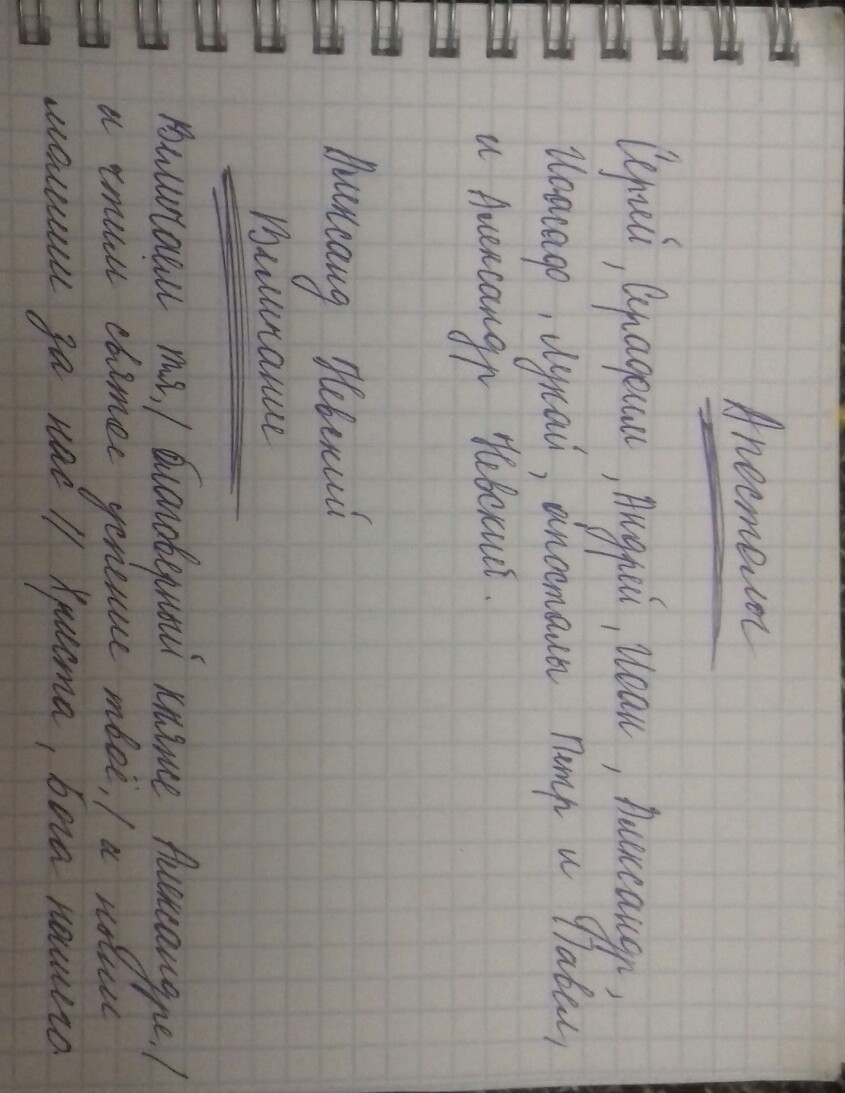 Апостолы
Сергей, Серафим, Андрей, Иоан, Александр,
Иоасаф, Лукай, апосталы Петр и Павел,
и Александр Невский.
Александ Невский
Величание
Величаем тя,/ благоверный княже Александре,/
и чтим святое успение твоё,/ и
молеши за нас // Христа, Бога нашего